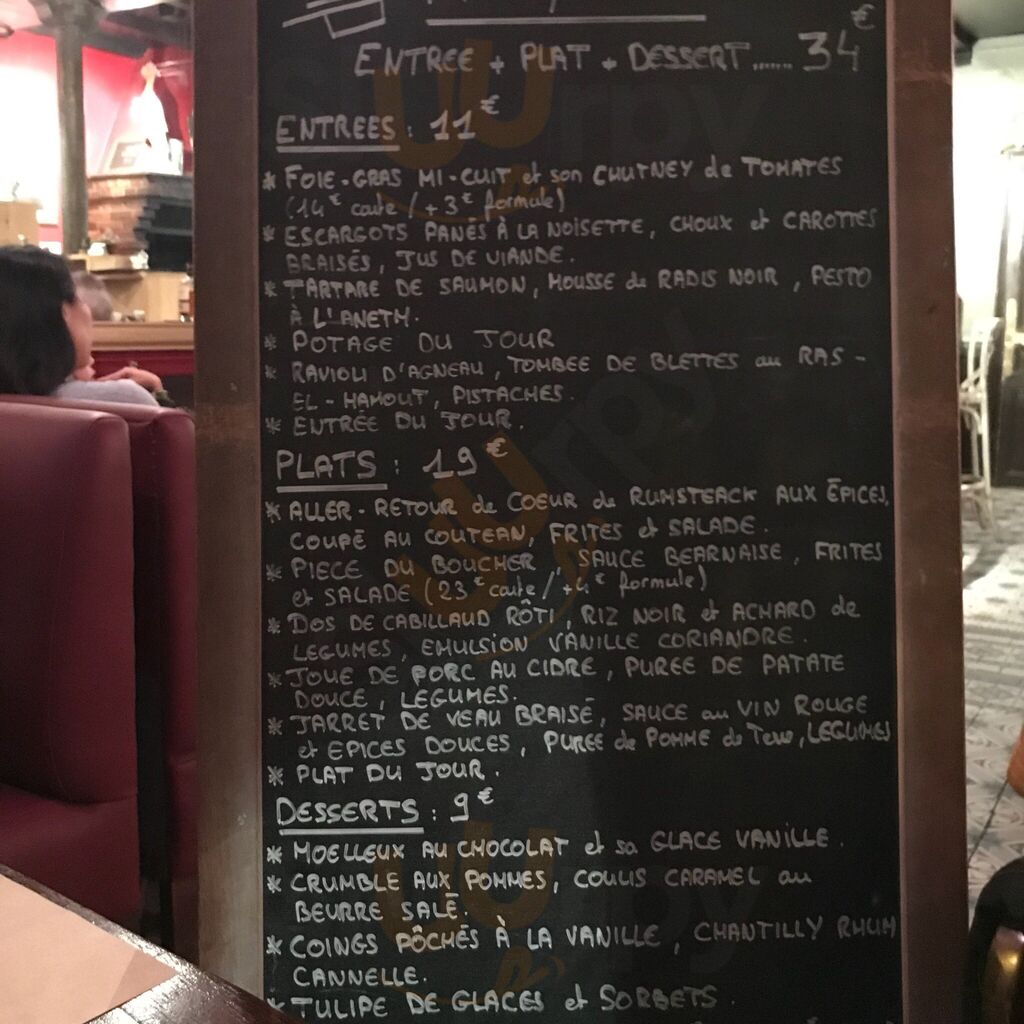 ENTREE + PLAT + DESSERT....... 34€
ENTREES : 11€
* FOIE-GRAS MI-CUIT et son CHUTNEY de TOMATES
(14€ carte / +3€ formule)
* ESCARGOTS PANÉS À LA NOISETTE, CHOUX et CAROTTES
BRAISÉS, JUS DE VIANDE.
* TARTARE DE SAUMON, MOUSSE de RADIS NOIR, PESTO
À L'ANETH.
* POTAGE DU JOUR
* RAVIOLI D'AGNEAU, TOMBEE DE BLETTES au RAS-
EL-HAMOUT, PISTACHES.
* ENTRÉE DU JOUR.
PLATS : 19€
* ALLER-RETOUR de COEUR de RUMSTEACK AUX ÉPICES,
COUPÉ AU COUTEAU, FRITES et SALADE.
* PIECE DU BOUCHER, SAUCE BEARNAISE, FRITES
et SALADE (23€ carte / +4€ formule)
* DOS DE CABILLAUD RÔTI, RIZ NOIR et ACHARD de
LEGUMES, EMULSION VANILLE CORIANDRE.
* JOUE DE PORC AU CIDRE, PUREE DE PATATE
DOUCE, LEGUMES.
* JARRET DE VEAU BRAISÉ, SAUCE au VIN ROUGE
et EPICES DOUCES, PUREE de POMME de Terre, LEGUMES
* PLAT DU JOUR.
DESSERTS : 9€
* MOELLEUX AU CHOCOLAT et sa GLACE VANILLE.
* CRUMBLE AUX POMMES, COULIS CARAMEL au
BEURRE SALÉ.
* COINGS PÔCHÉS À LA VANILLE, CHANTILLY RHUM
CANNELLE.
* TULIPE DE GLACES et SORBETS.